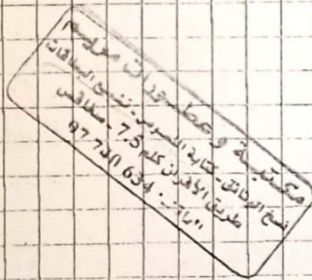 مكتبة و مطبوعات مريم
نسخ الوثائق - كتابة النصوص - نسخ البطاقات
طريق الأفران كلم 7,5 - صفاقس
الهاتف: 634